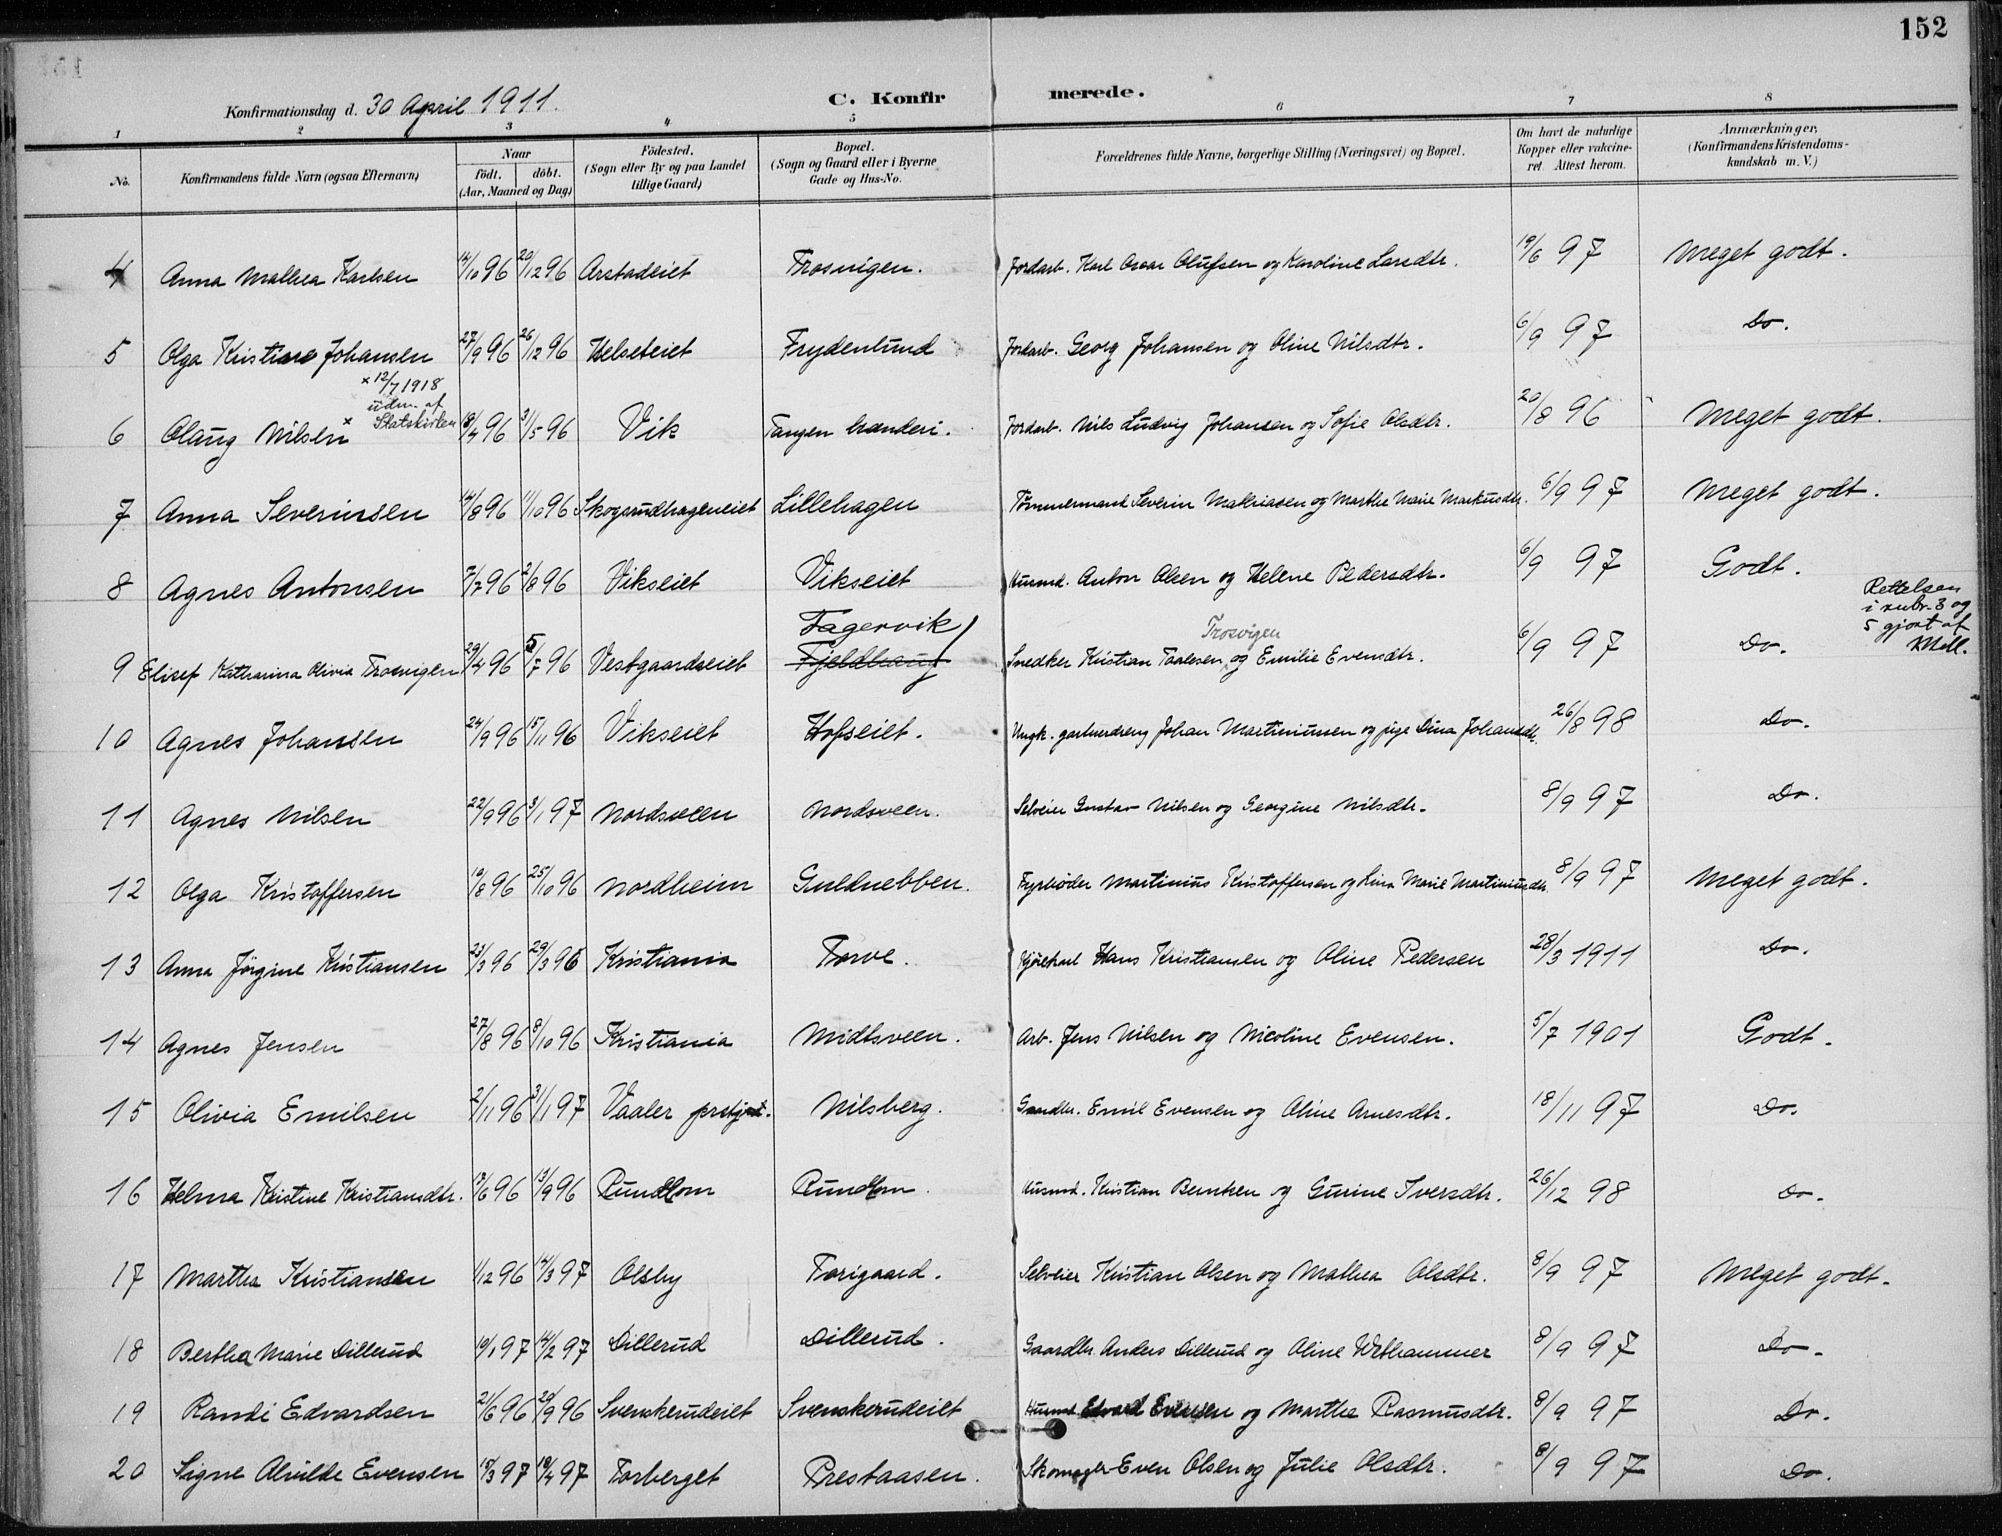 152
Konfirmationsdag d. 30 April 1911.
C. Konfir merede.
1 2 3 4 5 6 7 8
No. Konfirmandens fulde Navn (ogsaa Efternavn)
Naar födt. döbt. (Aar, Maaned og Dag)
Födested. (Sogn eller By og paa Landet tillige Gaard)
Bopæl. (Sogn og Gaard eller i Byerne Gade og Hus-No.
Forældrenes fulde Navne, borgerlige Stilling (Næringsvei) og Bopæl.
Om havt de naturlige Kopper eller vakcineret Attest herom.
Anmærkninger, (Konfirmandens Kristendomskundskab m. V.)
4 Anna Mathea Karlsen 14/10 96 20/12 96 Arstadeiet Trosvigen. Jordarb. Karl Oscar Olufsen og Karoline Larsdtr. 19/6 97 Meget godt.
5 Olga Kristine Johansen 27/9 96 26/12 96 Helseteiet Frydenlund Jordarb. Georg Johansen og Oline Nilsdtr. 6/9 97 Do.
x 12/7 1918
udm. af
Statskirken
6 Olaug Nilsen x 18/4 96 3/5 96 Vik Tangen brænderi. Jordarb. Nils Ludvig Johansen og Sofie Olsdtr. 20/8 96 Meget godt.
7 Anna Severinsen 14/8 96 11/10 96 Skogsrudhageneiet Lillehagen Tømmermand Severin Mathiasen og Marthe Marie Markusdtr. 6/9 97 Meget godt.
8 Agnes Antonsen 7/7 96 2/8 96 Vikseiet Vikseiet Husmd. Anton Olsen og Helene Pedersdtr. 6/9 97 Godt.
Rettelsen
i rubr. 3 og
5 gjort af
Fagervik
Trosvigen
9 Elisef Katharina Olivia Trosvigen 29/4 96 5/7 96 Vestgaardseiet Fjeldhaug Snedker Kristian Taalesen og Emilie Evensdtr. 6/9 97 Do.
10 Agnes Johansen 24/9 96 15/11 96 Vikseiet Hofseiet. Ungk. gartnerdreng Johan Martiniussen og pige Dina Johansdtr. 26/8 98 Do.
11 Agnes Nilsen 22/9 96 3/1 97 Nordsveen Nordsveen. Selveier Gustav Nilsen og Georgine Nilsdtr. 8/9 97 Do.
12 Olga Kristoffersen 19/8 96 25/10 96 Nordheim Guldnebben. Fyrbøder Martinius Kristoffersen og Lina Marie Martiniusdtr. 8/9 97 Meget godt.
13 Anna Jörgine Kristiansen 23/3 96 29/3 96 Kristiania Torve. Kjørekarl Hans Kristiansen og Oline Pedersen 28/3 1911 Do.
14 Agnes Jensen 27/8 96 8/10 96 Kristiania Midtsveen. Arb. Jens Nilsen og Nicoline Evensen. 5/7 1901 Godt.
15 Olivia Emilsen 2/11 96 31/1 97 Vaaler prstgjld. Nilsberg. Gaardbr. Emil Evensen og Oline Arnesdtr. 18/11 97 Do.
16 Helma Kristine Kristiansdtr. 17/6 96 13/9 96 Rundlom Rundlom. Husmd. Kristian Bernken og Gurine Iversdtr. 26/12 98 Do.
17 Martha Kristiansen 1/12 96 14/3 97 Olsby Torigaard. Selveier Kristian Olsen og Mathea Olsdtr. 8/9 97 Meget godt.
18 Berthea Marie Dillerud 10/1 97 14/2 97 Dillerud Dillerud. Gaardbr. Anders Dillerud og Oline Wethammer 8/9 97 Do.
19 Randi Edvardsen 21/6 96 20/9 96 Svenskerudeiet Svenskerudeiet Husmd. Edvard Evensen og Marthe Rasmusdtr. 8/9 97 Do.
20 Signe Alvilde Evensen 15/3 97 18/4 97 Torberget Prestaasen. Skomager Even Olsen og Julie Olsdtr. 8/9 97 Do.